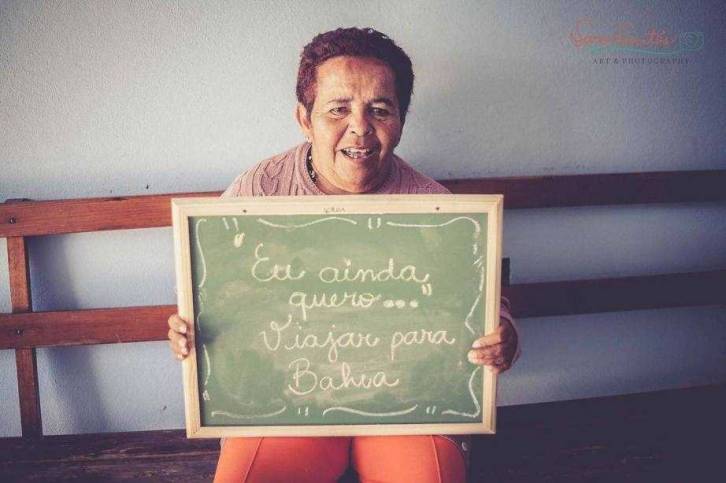 ART & PHOTOGRAPHY
"Eu ainda
quero..."
Viajar para
Bahia